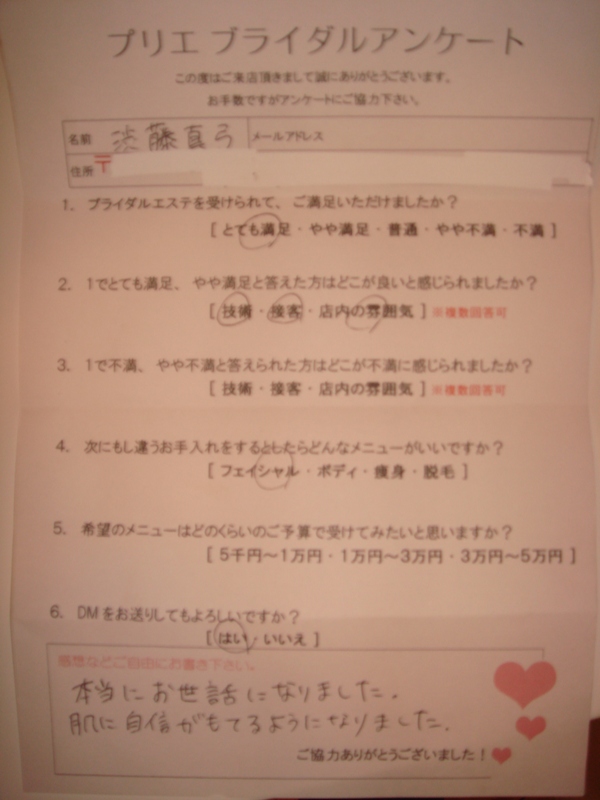 プリエ ブライダルアンケート
この度はご来店頂きまして誠にありがとうございます。
お手数ですがアンケートにご協力下さい。
名前 渋藤真弓 メールアドレス
住所 〒
1. ブライダルエステを受けられて、ご満足いただけましたか？
[ とても満足・やや満足・普通・やや不満・不満 ]
2. 1でとても満足、やや満足と答えた方はどこが良いと感じられましたか？
[ 技術・接客・店内の雰囲気 ] ※複数回答可
3. 1で不満、やや不満と答えられた方はどこが不満に感じられましたか？
[ 技術・接客・店内の雰囲気 ] ※複数回答可
4. 次にもし違うお手入れをするとしたらどんなメニューがいいですか？
[ フェイシャル・ボディ・痩身・脱毛 ]
5. 希望のメニューはどのくらいのご予算で受けてみたいと思いますか？
[ 5千円〜1万円・1万円〜3万円・3万円〜5万円 ]
6. DMをお送りしてもよろしいですか？
[ はい・いいえ ]
感想などご自由にお書き下さい。
本当にお世話になりました。
肌に自信がもてるようになりました。
ご協力ありがとうございました！